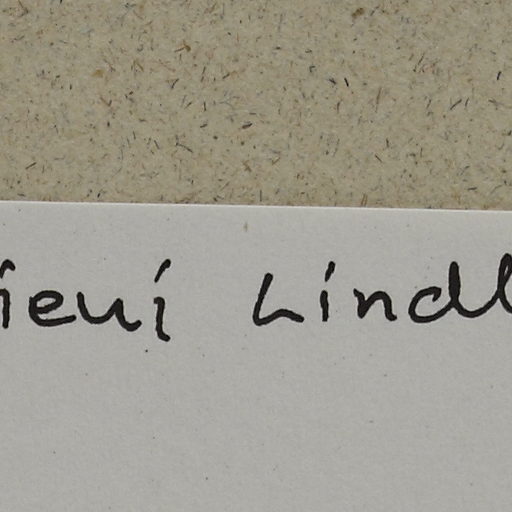 ieui Lindl